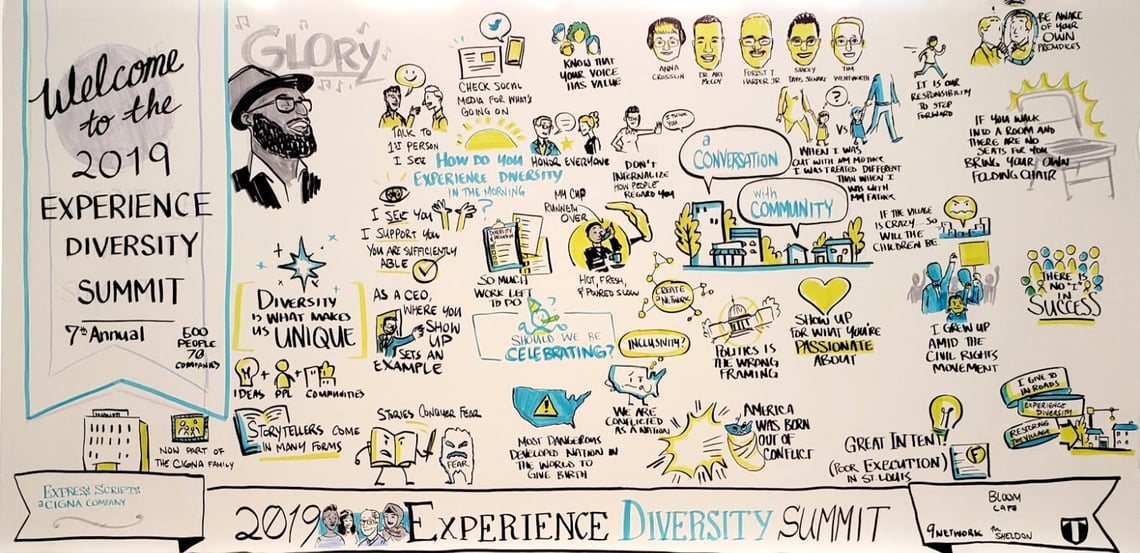 Welcome
to the
2019
EXPERIENCE
DIVERSITY
SUMMIT
7th Annual
500
PEOPLE
70
COMPANIES
NOW PART OF
THE CIGNA FAMILY
EXPRESS SCRIPTS
a CIGNA COMPANY
GLORY
TALK TO
1ST PERSON
I SEE
CHECK SOCIAL
MEDIA FOR WHAT'S
GOING ON
HOW DO YOU
EXPERIENCE DIVERSITY
IN THE MORNING
?
KNOW THAT
YOUR VOICE
HAS VALUE
HONOR EVERYONE
I THANK
YOU
DON'T
INTERNALIZE
HOW PEOPLE
REGARD YOU
I SEE YOU
I SUPPORT YOU
YOU ARE SUFFICIENTLY
ABLE
DIVERSITY
& INCLUSION
SO MUCH
WORK LEFT
TO DO
MY CUP
RUNNETH
OVER
HOT, FRESH,
& POURED SLOW
ANNA
CROSSLIN
DR. ART
McCOY
FOREST T
HARPER JR.
STACEY
TIM
WENTWORTH
a
CONVERSATION
with
COMMUNITY
?
VS
WHEN I WAS
OUT WITH MY MOTHER
I WAS TREATED DIFFERENT
THAN WHEN I
WAS WITH
MY FATHER
IT IS OUR
RESPONSIBILITY
TO STEP
FORWARD
BE AWARE
OF YOUR
OWN
PREJUDICES
IF YOU WALK
INTO A ROOM AND
THERE ARE NO
SEATS FOR YOU
BRING YOUR OWN
FOLDING CHAIR
IF THE VILLAGE
IS CRAZY... SO
WILL THE
CHILDREN BE
I GREW UP
AMID THE
CIVIL RIGHTS
MOVEMENT
THERE IS
NO "I"
IN
SUCCESS
DIVERSITY
IS WHAT MAKES
US UNIQUE
IDEAS + PPL + COMMUNITIES
STORYTELLERS COME
IN MANY FORMS
AS A CEO,
WHERE YOU
SHOW
UP
SETS AN
EXAMPLE
STORIES CONQUER FEAR
FEAR
SHOULD WE BE
CELEBRATING?
MOST DANGEROUS
DEVELOPED NATION IN
THE WORLD TO
GIVE BIRTH
CREATE
A NETWORK
INCLUSIVITY?
WE ARE
CONFLICTED
AS A NATION
POLITICS IS
THE WRONG
FRAMING
SHOW UP
FOR WHAT YOU'RE
PASSIONATE
ABOUT
AMERICA
WAS BORN
OUT OF
CONFLICT
GREAT INTENT
(POOR EXECUTION)
IN ST. LOUIS
F
I GIVE TO
INROADS
EXPERIENCE
DIVERSITY
RESTORING
THE VILLAGE
2019 EXPERIENCE DIVERSITY SUMMIT
BLOOM
CAFE
9NETWORK
THE
SHELDON